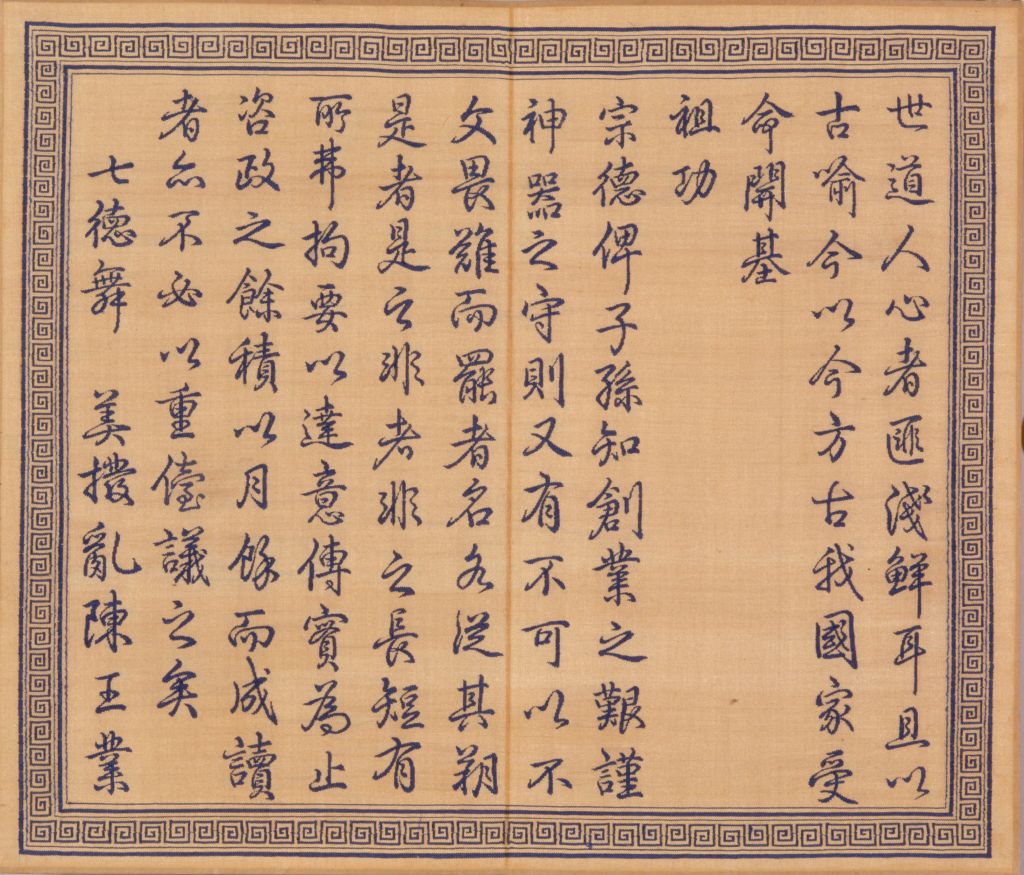 世道人心者匪淺鮮耳且以
古喻今以今方古我國家受
命開基
祖功
宗德俾子孫知創業之艱謹
神器之守則又有不可以不
文畏難而罷者名各從其朔
是者是之非者非之長短有
所弗拘要以達意傳實為止
咨政之餘積以月餘而成讀
者亦不必以重儓議之矣
七德舞 美撥亂陳王業